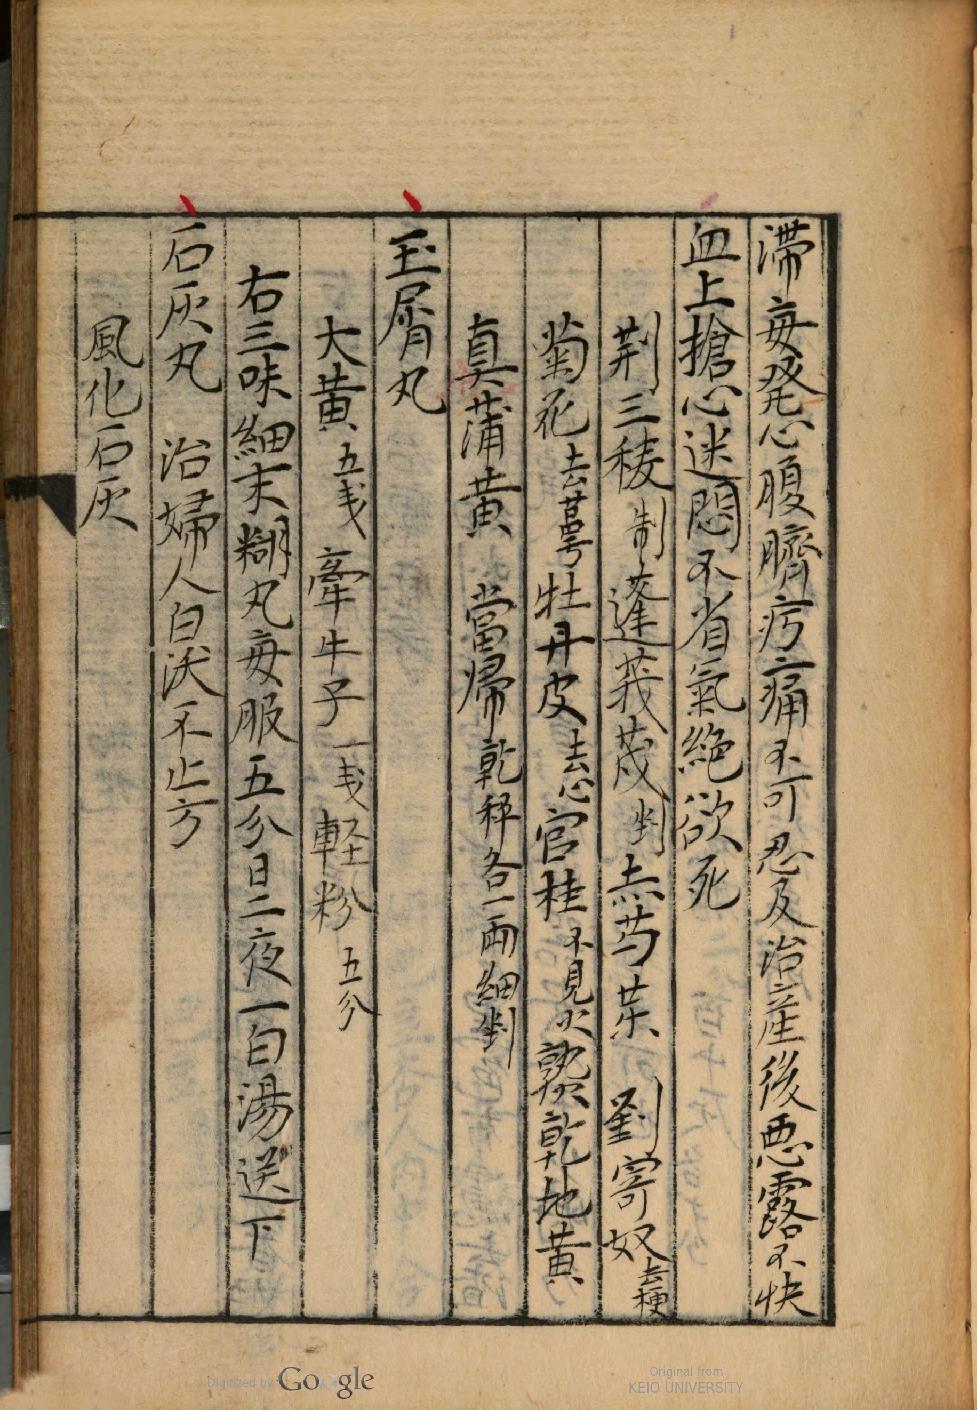 滞毎発心腹臍疞痛不可忍及治産後悪露不快
血上搶心迷悶不省氣絶欲死
荆三稜制蓬莪茂剉赤芍薬 劉寄奴去梗
菊花去萼牡丹皮去心官桂不見火熟乾地黄
真蒲黄 當帰乾秤各一兩細剉
玉屑丸
大黄五戋牽牛子一戋軽粉五分
右三味細末糊丸毎服五分日二夜一白湯送下
石灰丸 治婦人白沃不止方
風化石灰
Digitized by Google
Original from
KEIO UNIVERSITY